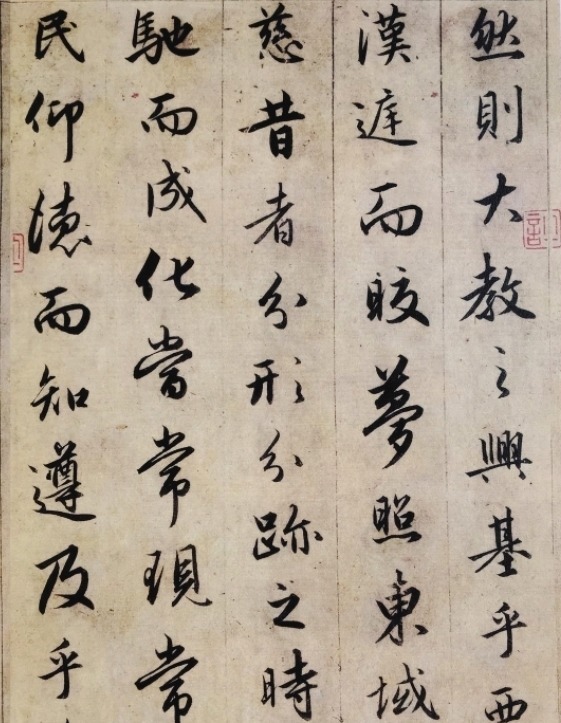 然則大教之興基乎西
漢庭而皎夢照東域
慈昔者分形分跡之時
馳而成化當常現常
民仰德而知遵及乎